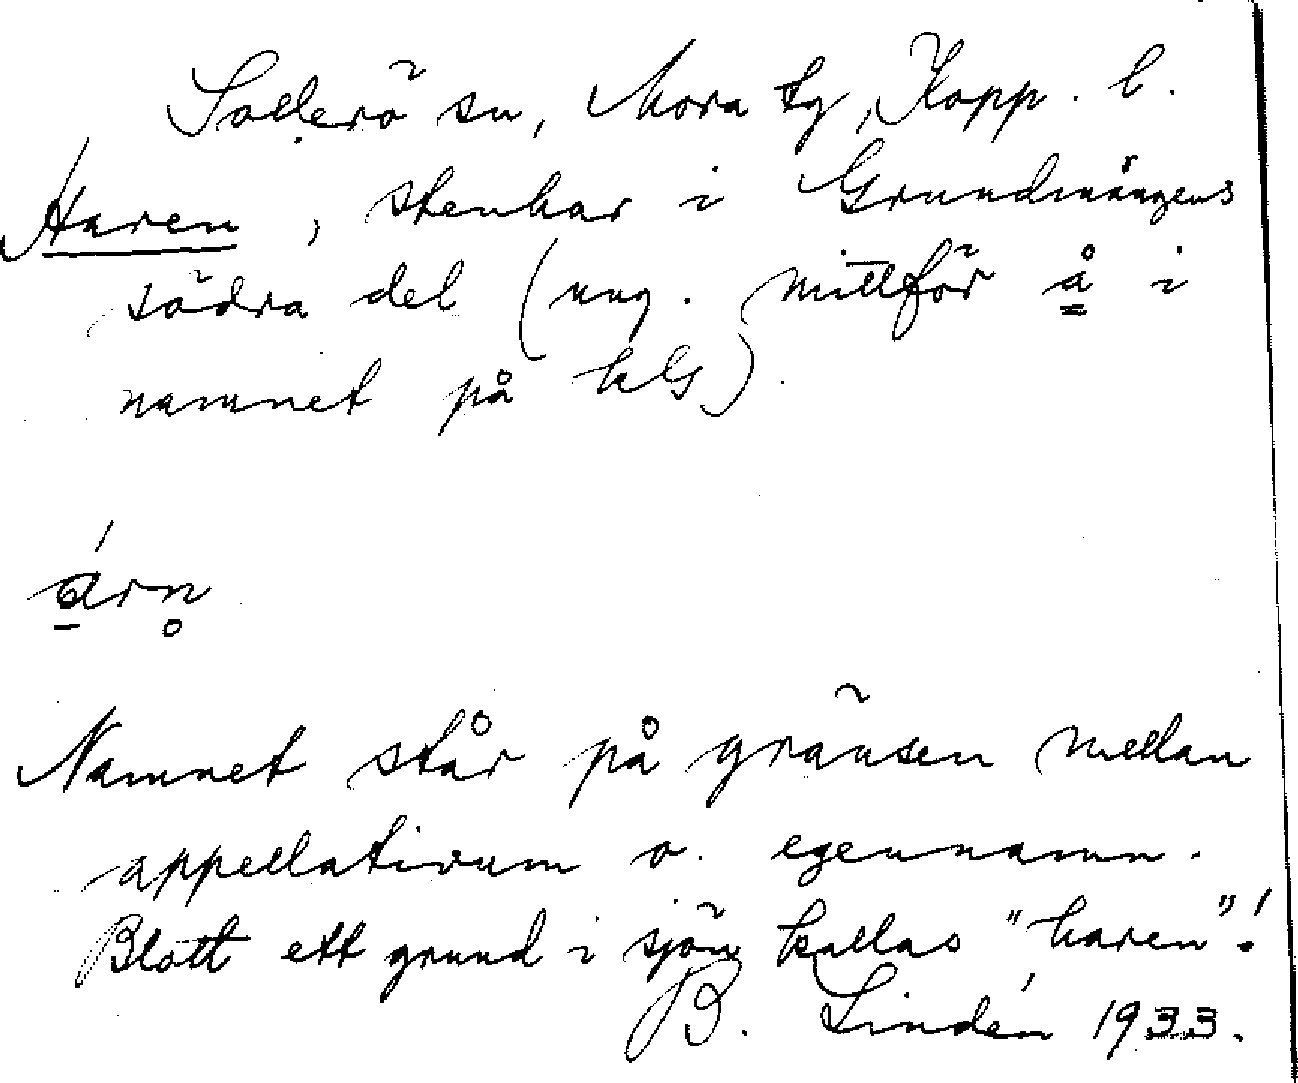 Sollerö sn, Mora tg, Kopp. l.
Haren, stenhar i Grundvångens
södra del (ung. mittför å i
namnet på kG).
árn
Namnet står på gränsen mellan
appellativum o. egennamn.
Blott ett grund i sjön kallas "haren"!
B. Lindén 1933.